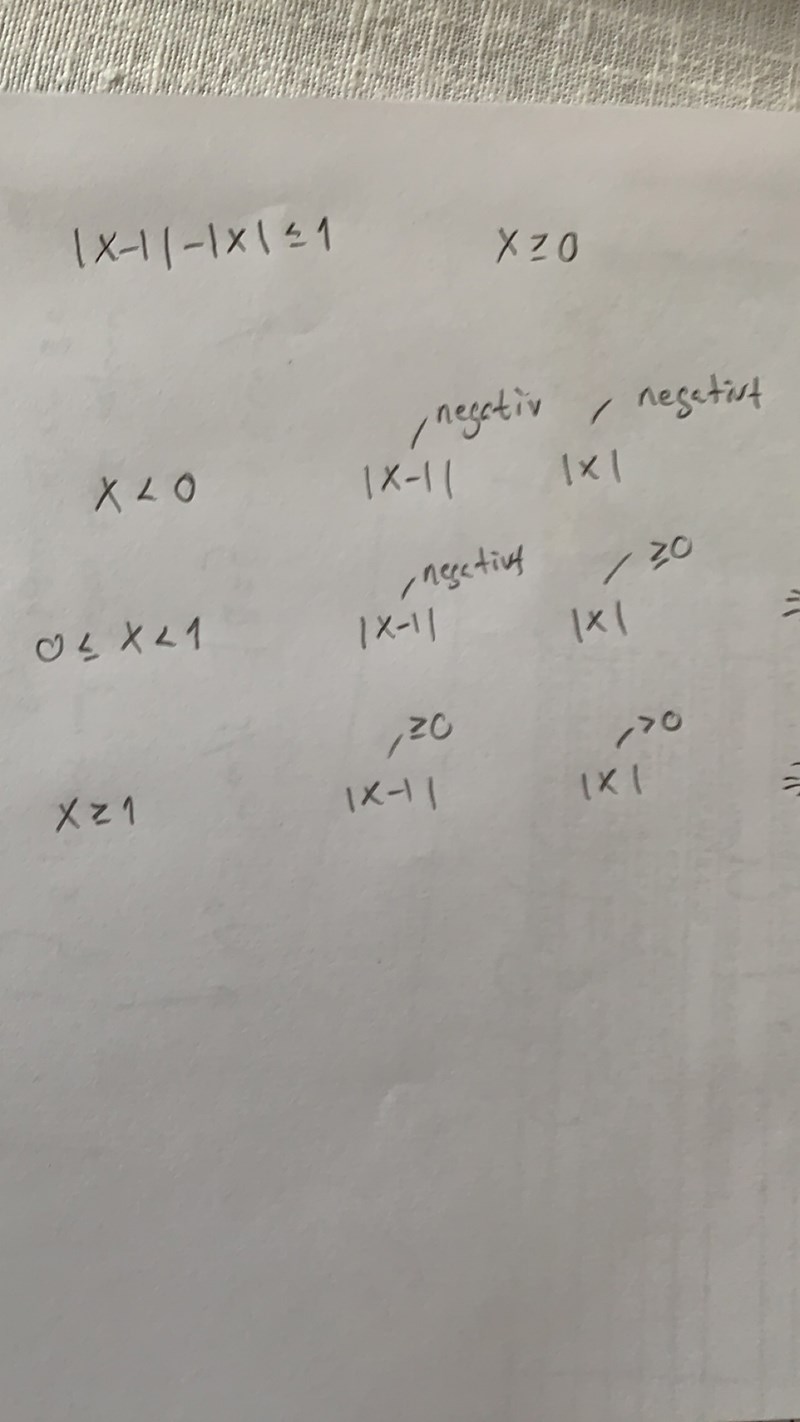 |x-1|-|x| ≤ 1 x ≥ 0
negativ negativt
x < 0 |x-1| |x|
negativt ≥0
0 ≤ x < 1 |x-1| |x|
≥0 >0
x ≥ 1 |x-1| |x|